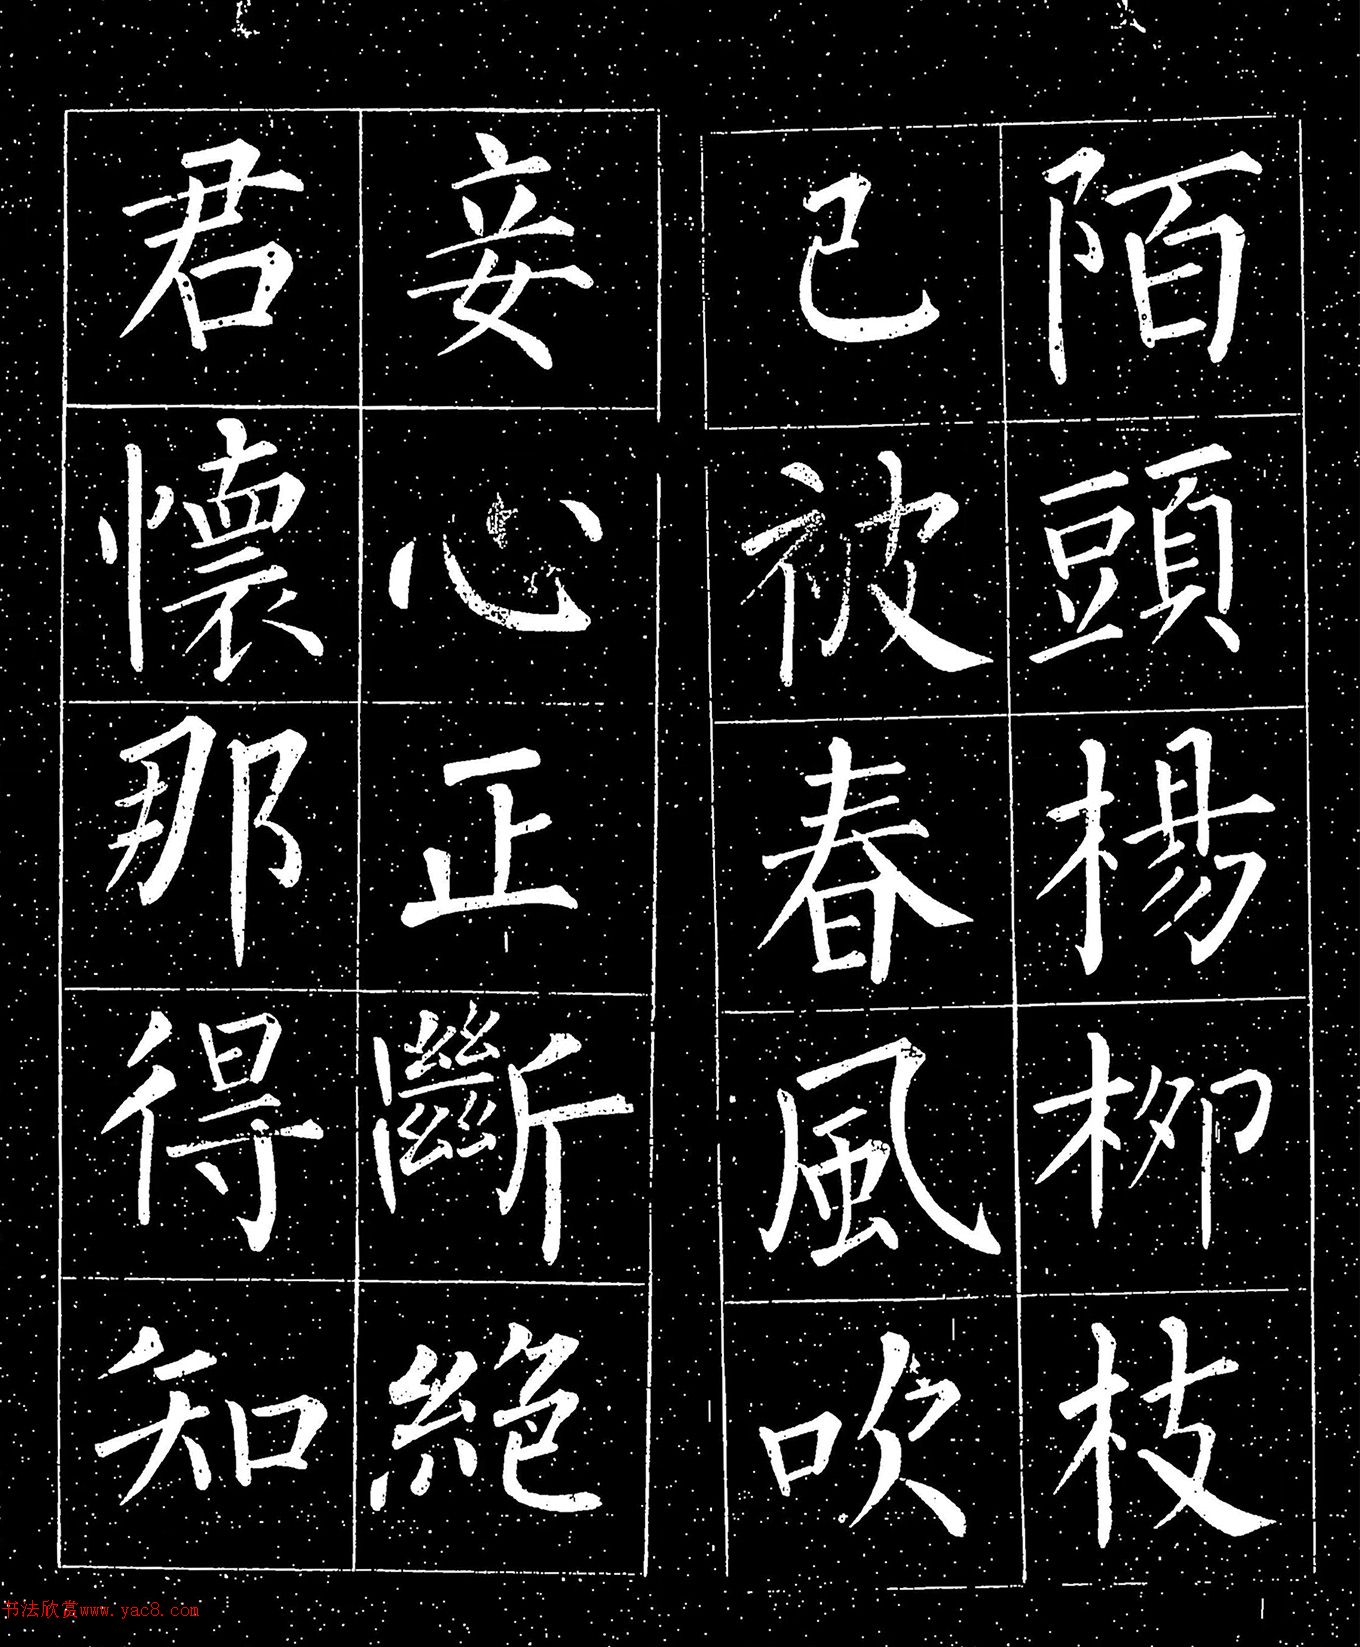 陌頭楊柳枝
已被春風吹
妾心正斷絶
君懷那得知
书法欣赏www.yac8.com